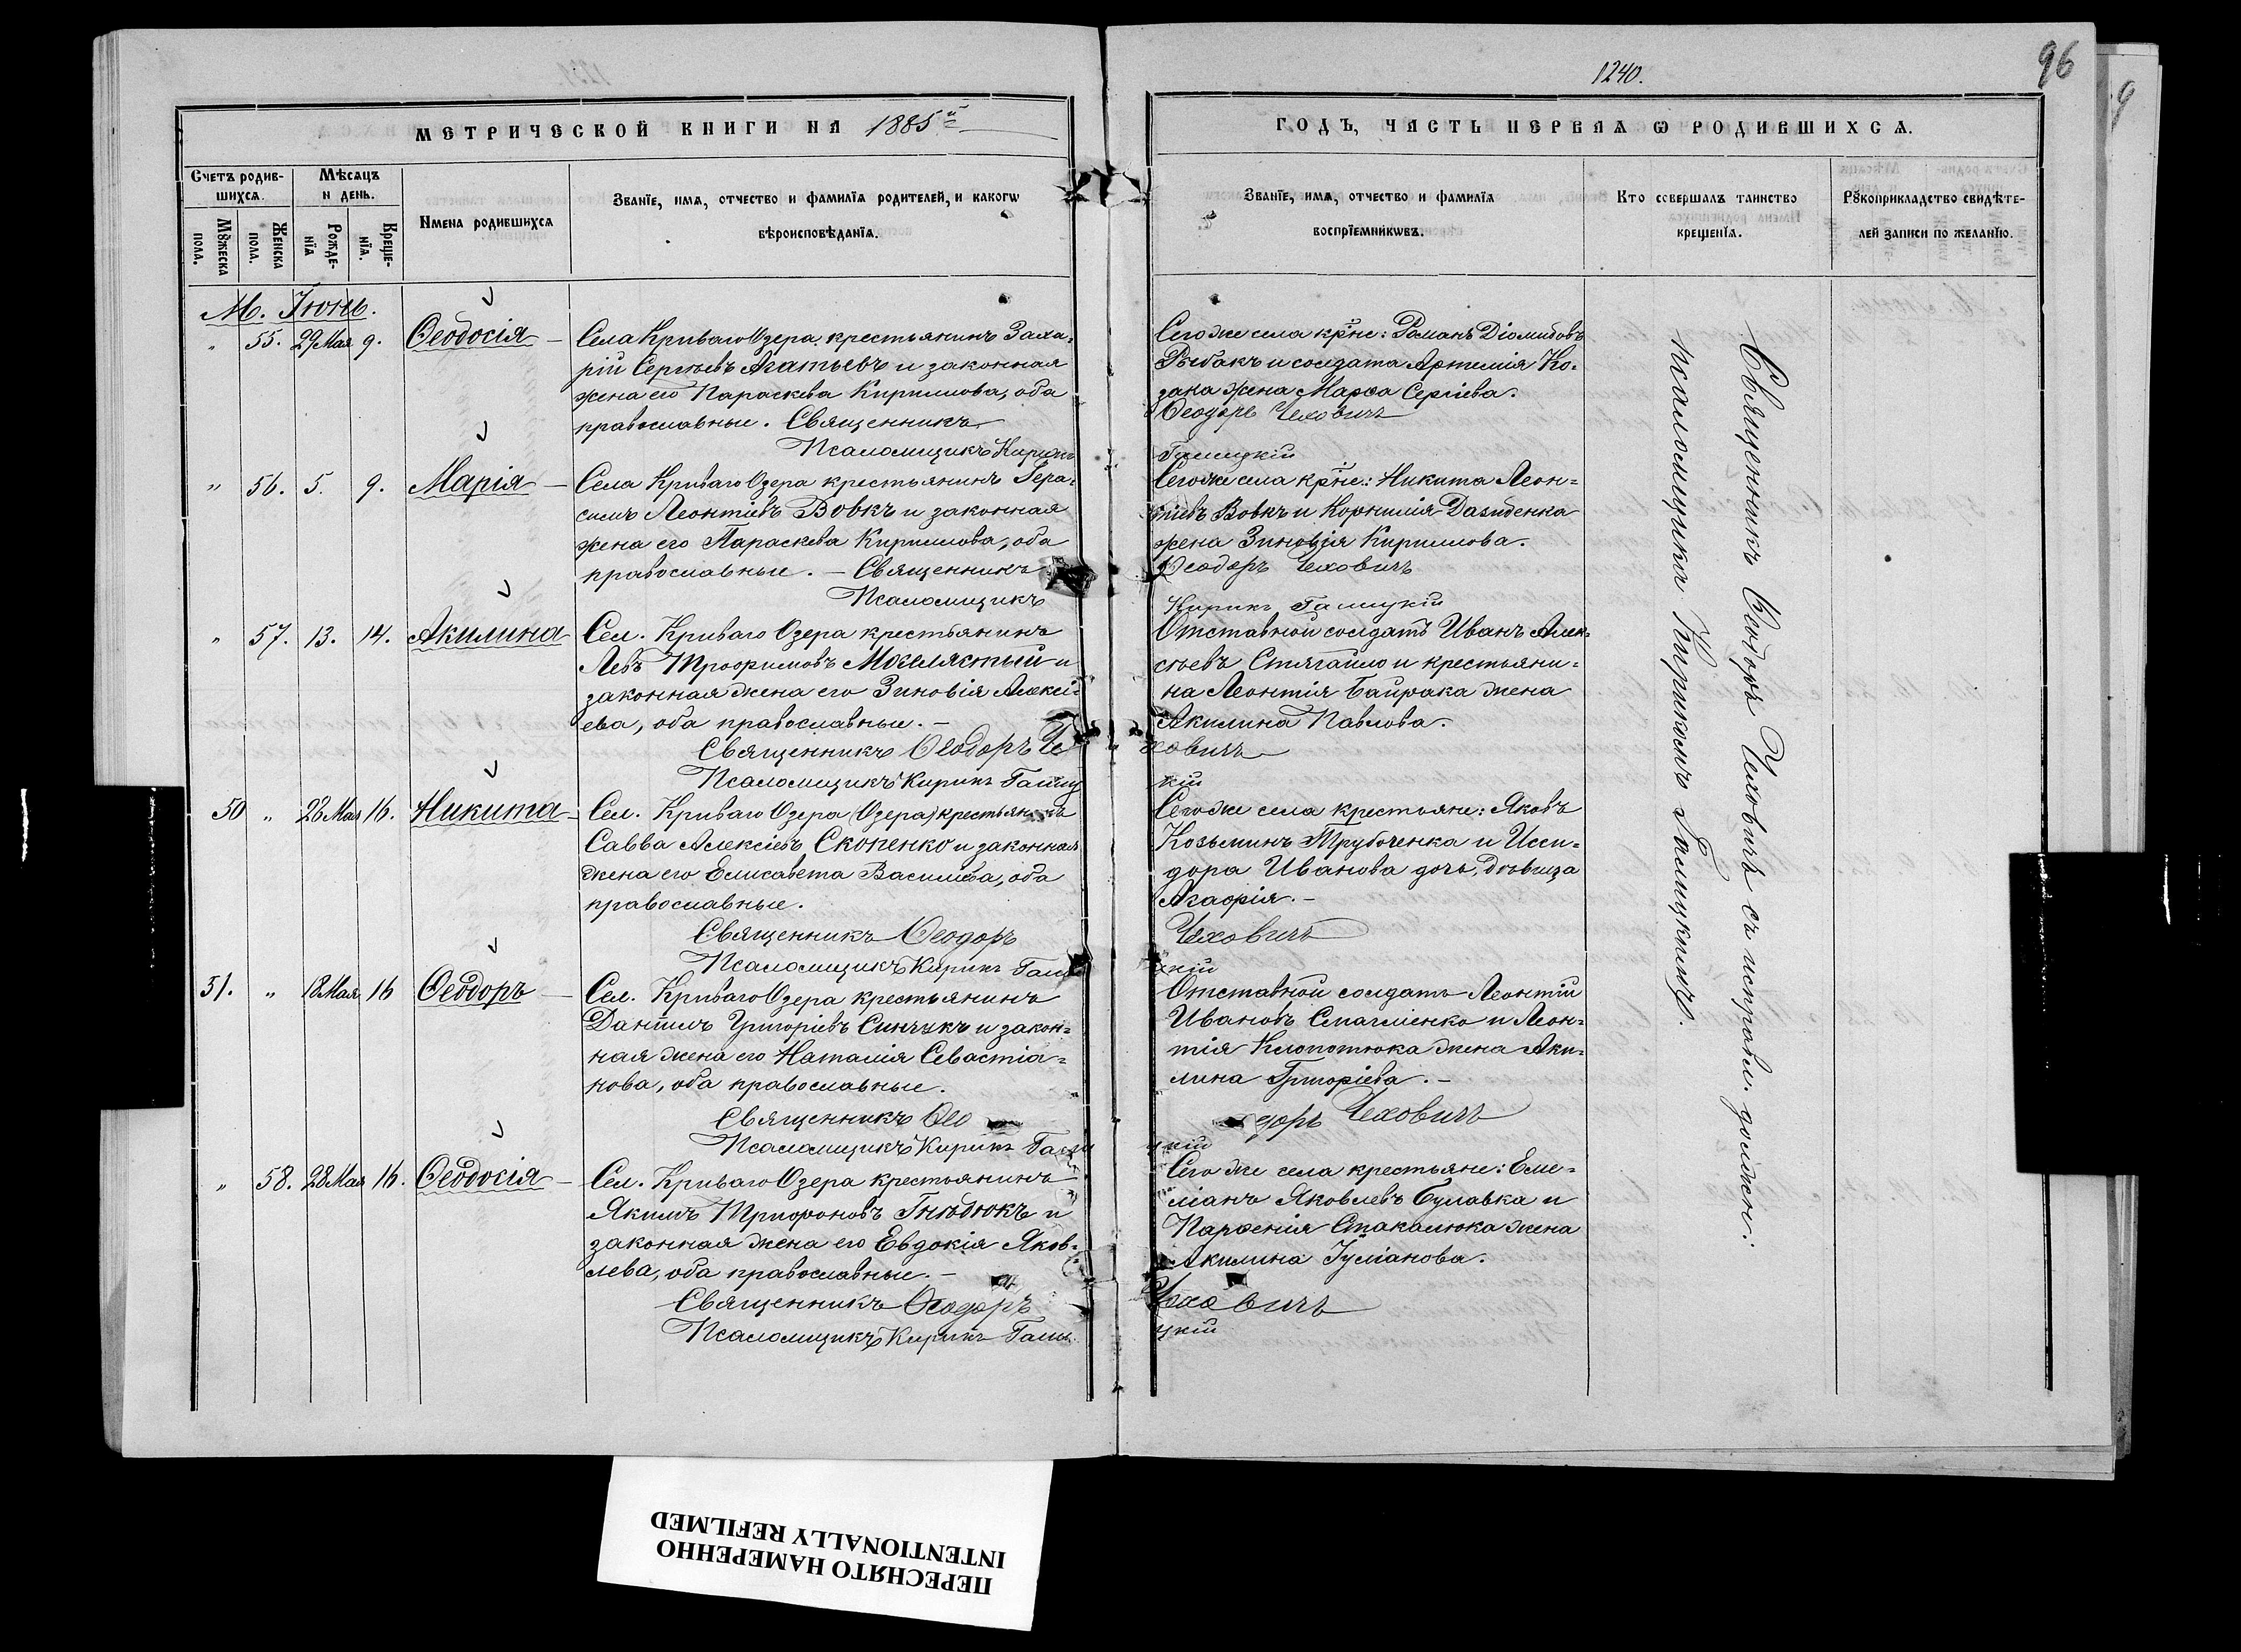 1240.
96
МЕТРИЧЕСКОЙ КНИГИ НА 1885й
ГОДЪ, ЧАСТЬ ПЕРВАЯ Ѡ РОДИВШИХСЯ.
Счетъ родив-
шихся.
Мѣсяцъ
и день.
Имена родившихся
Званїе, имя, отчество и фамилїя родителей, и какогѡ
вѣроисповѣданїя.
Мꙋжеска
пола.
Женска
пола.
Рожде-
нїя
Креще-
нїя.
Званїе, имя, отчество и фамилїя
воспрїемникѡвъ.
Кто совершалъ таинство
крещенїя.
Рꙋкоприкладство свидѣте-
лей записи по желанїю.
М. Іюнь.
" 55. 29 Мая 9. Ѳеодосія
Села Криваго Озера крестьянинъ Заха-
рій Сергѣевъ Агатьевъ и законная
жена его Параскева Кириллова, оба
православные. Священникъ
Псаломщикъ Кирикъ
Сего же села кр-не: Романъ Діомидовъ
Рыбакъ и солдата Артемія Ко-
зака жена Марѳа Сергіева.
Ѳеодоръ Чеховичъ
Галицкій
" 56. 5. 9. Марія
Села Криваго Озера крестьянинъ Гера-
симъ Леонтіевъ Вовкъ и законная
жена его Параскева Кириллова, оба
православные. — Священникъ
Псаломщикъ
Сего же села кр-не: Никита Леон=
тіевъ Вовкъ и Корнилія Давиденка
жена Зиновія Кириллова.
Ѳеодоръ Чеховичъ
Кирикъ Галицкій
" 57. 13. 14. Акилина
Сел. Криваго Озера крестьянинъ
Левъ Трофимовъ Могилястый и
законная жена его Зиновія Алексі-
ева, оба православные. —
Священникъ Ѳеодоръ Че
Псаломщикъ Кирикъ Галиц
Отставной солдатъ Иванъ Алек-
сѣевъ Стягайло и крестьяни=
на Леонтія Байрака жена
Акилина Павлова.
ховичъ
кій
50 " 28 Мая 16. Никита
Сел. Криваго Озера (Озера) крестьянинъ
Савва Алексіевъ Скопенко и законная
жена его Елисавета Василіева, оба
православные.
Священникъ Ѳеодоръ
Псаломщикъ Кирикъ Гали
Сего же села крестьяне: Яковъ
Козьминъ Трубченка и Иси=
дора Иванова дочь, дѣвица
Агаѳія. —
Чеховичъ
цкій
51. " 18 Мая 16 Ѳеодоръ
Сел. Криваго Озера крестьянинъ
Даніилъ Григоріевъ Синчукъ и закон=
ная жена его Наталія Севастіа=
нова, оба православные.
Священникъ Ѳео
Псаломщикъ Кирикъ Гали
Отставной солдатъ Леонтій
Ивановъ Смагліенко и Леон=
тія Клопотюка жена Аки=
лина Григоріева. —
доръ Чеховичъ
цкій
" 58. 28 Мая 16. Ѳеодосія
Сел. Криваго Озера крестьянинъ
Якимъ Трифоновъ Гнѣдюкъ и
законная жена его Евдокія Яков-
лева, оба православные. —
Священникъ Ѳеодоръ
Псаломщикъ Кирикъ Гали
Сего же села крестьяне: Еме=
ліанъ Яковлевъ Булавка и
Парѳенія Стакалюка жена
Акилина Іуліанова.
Чеховичъ
цкій
Священникъ Ѳеодоръ Чеховичъ съ исправл. должн.
псаломщика Кирикомъ Галицкимъ.
ПЕРЕСНЯТО НАМЕРЕННО
INTENTIONALLY REFILMED